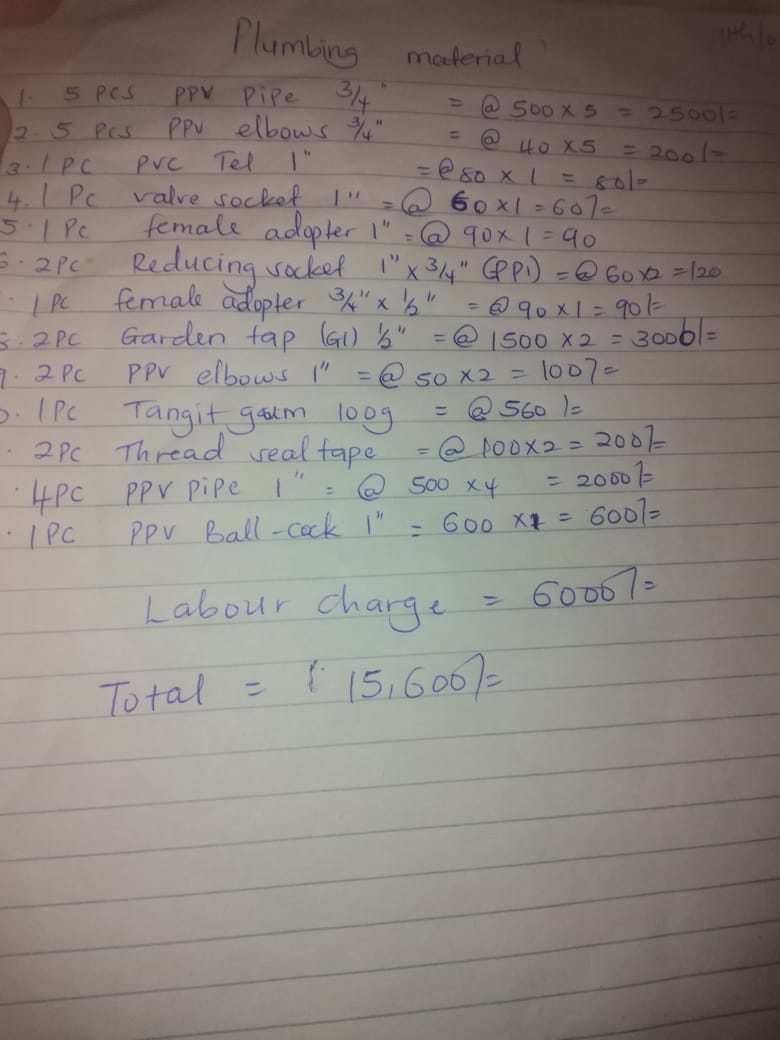 Plumbing material
1. 5 PCS PPV PIPE 3/4" = @ 500 x 5 = 2500/=
2. 5 PCS PPV elbows 3/4" = @ 40 x 5 = 200/=
3. 1 PC PVC Tel 1" = @ 80 x 1 = 80/=
4. 1 PC valve socket 1" = @ 60 x 1 = 60/=
5. 1 PC female adopter 1" = @ 90 x 1 = 90
2PC Reducing socket 1" x 3/4" (PPI) = @ 60 x 2 = 120
1 PC female adopter 3/4" x 1/2" = @ 90 x 1 = 90/=
2PC Garden tap (GI) 1/2" = @ 1500 x 2 = 3000/=
2 PC PPV elbows 1" = @ 50 x 2 = 100/=
1PC Tangit 100g = @ 560/=
2PC Thread seal tape = @ 100 x 2 = 200/=
4PC PPV PIPE 1" = @ 500 x 4 = 2000/=
1PC PPV Ball-cock 1" = 600 x 1 = 600/=
Labour charge = 6000/=
Total = 15,600/=